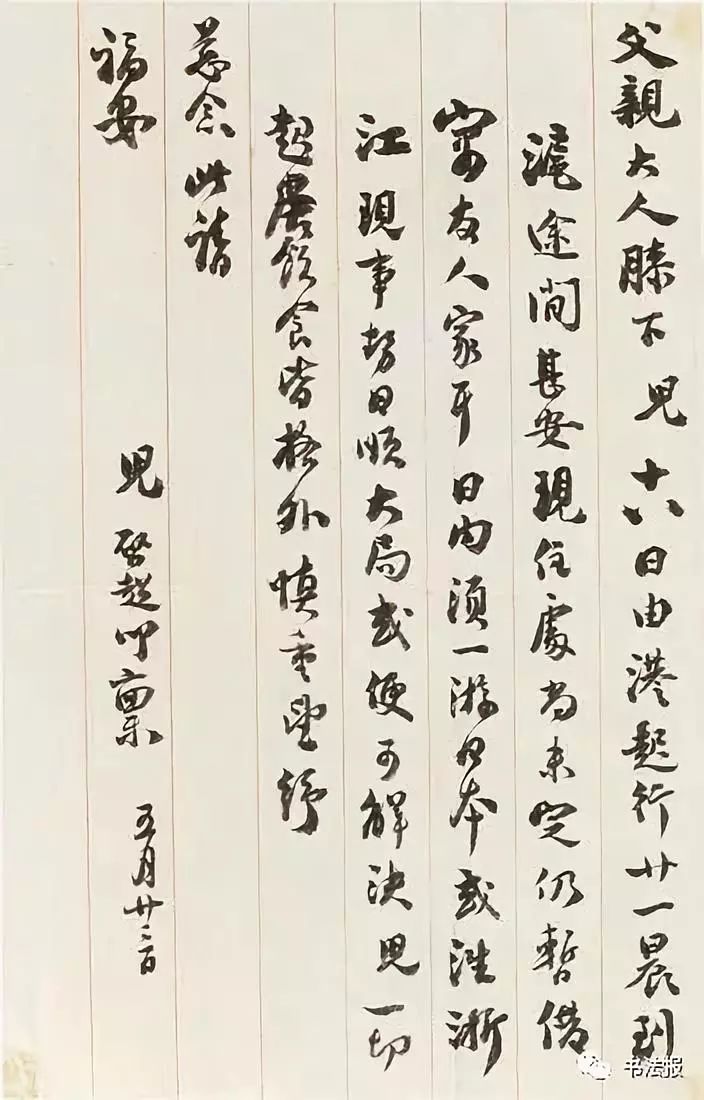 父親大人膝下兒十八日由港起行廿一晨到
滬途間甚安現住處尚未定仍暫借
寓友人家耳日内須一游日本或往浙
江現事勢日順大局或便可解決兒一切
起居飲食皆格外慎重望紓
慈念此請
福安
兒啓超叩稟 五月廿二日
书法报